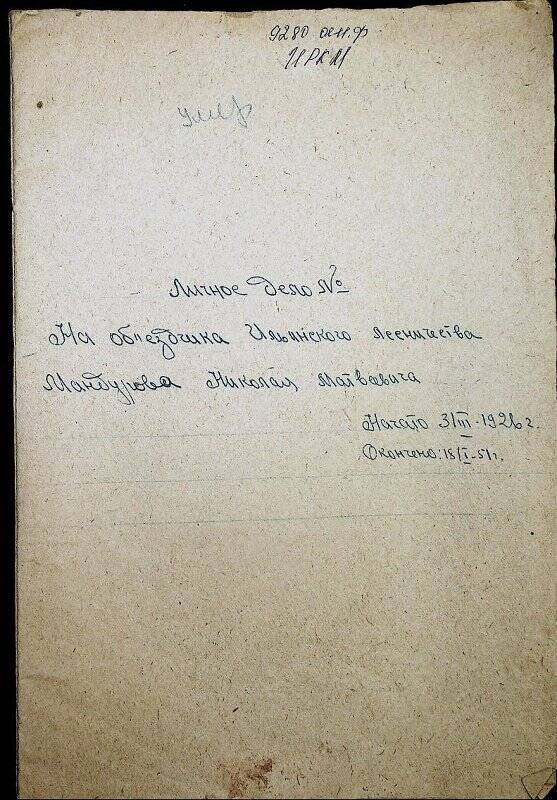 9280 осн.ф
ИРКМ
умер
Личное дело №
На об"ездчика Ильинского лесничества
Мандурова Николая Матвеевича
Начато 3/III-1926г.
Окончено: 18/I-51г.